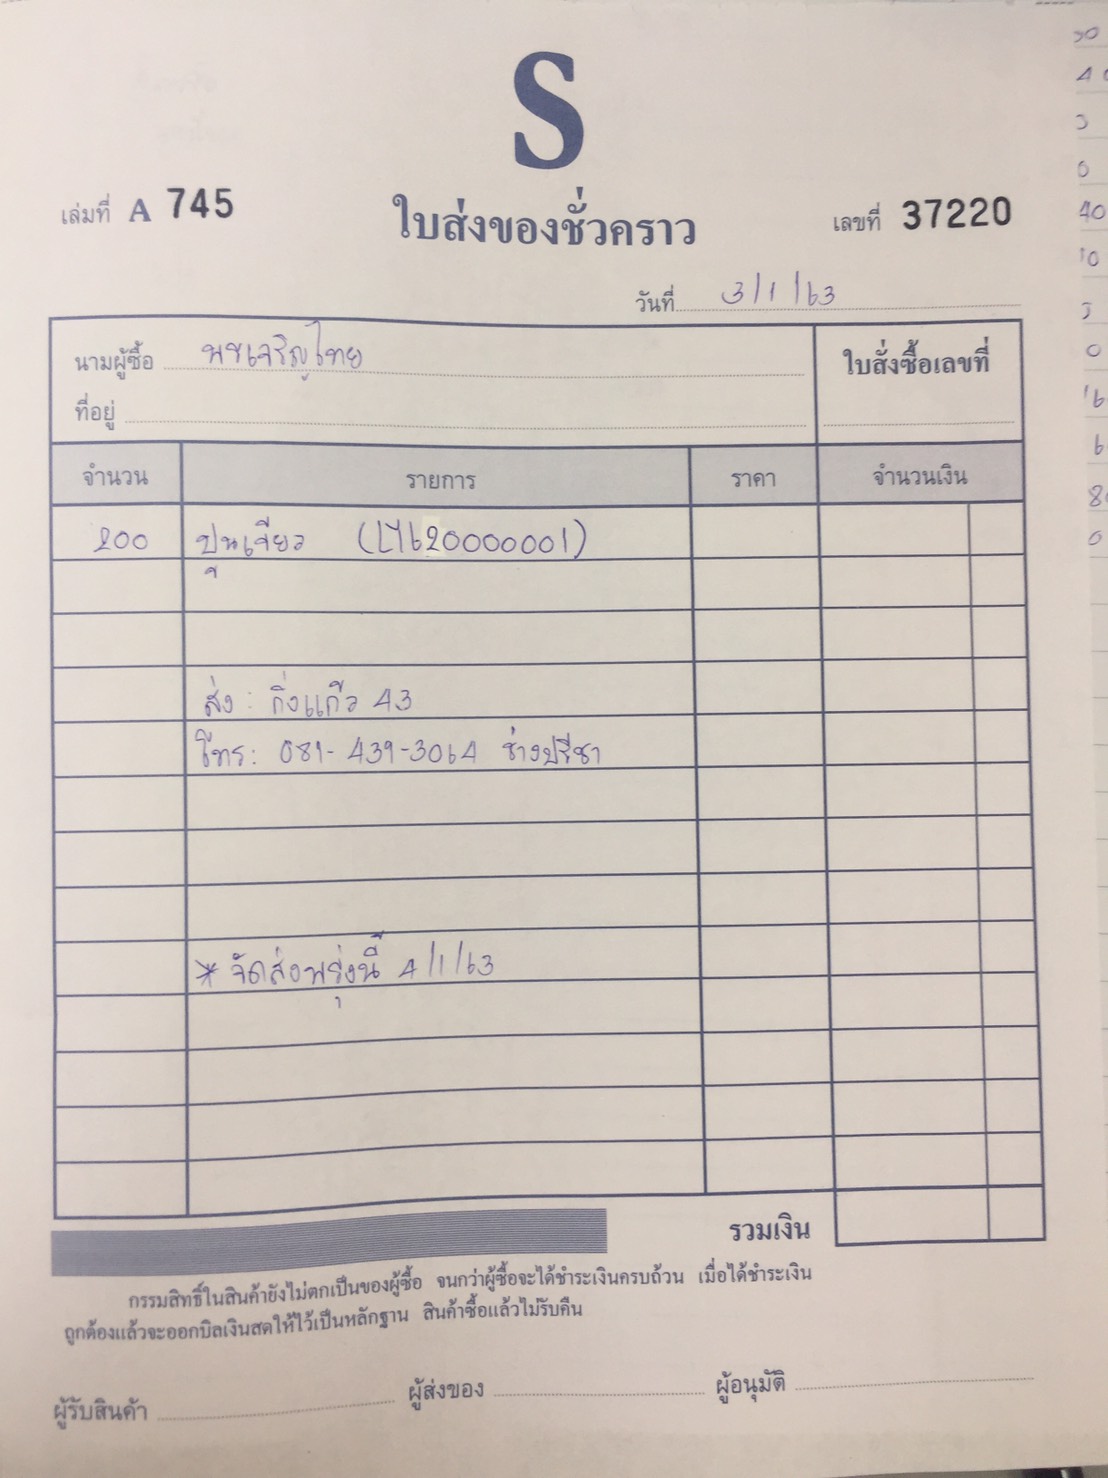 S
เล่มที่ A 745
ใบส่งของชั่วคราว
เลขที่ 37220
วันที่ 3/1/63
นามผู้ซื้อ พชเจริญไทย
ใบสั่งซื้อเลขที่
ที่อยู่
จำนวน รายการ ราคา จำนวนเงิน
200 ปูนเจียว
ส่ง : กิ่งแก้ว 43
โทร: 081-439-3064 ช่างปรีชา
* จัดส่งพรุ่งนี้ 4/1/63
รวมเงิน
กรรมสิทธิ์ในสินค้ายังไม่ตกเป็นของผู้ซื้อ จนกว่าผู้ซื้อจะได้ชำระเงินครบถ้วน เมื่อได้ชำระเงิน
ถูกต้องแล้วจะออกบิลเงินสดให้ไว้เป็นหลักฐาน สินค้าซื้อแล้วไม่รับคืน
ผู้รับสินค้า ผู้ส่งของ ผู้อนุมัติ